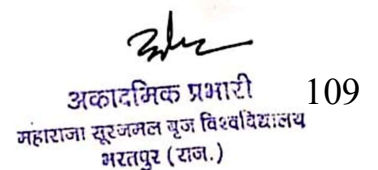 अकादमिक प्रभारी
109
महाराजा सूरजमल बृज विश्वविद्यालय
भरतपुर (राज.)